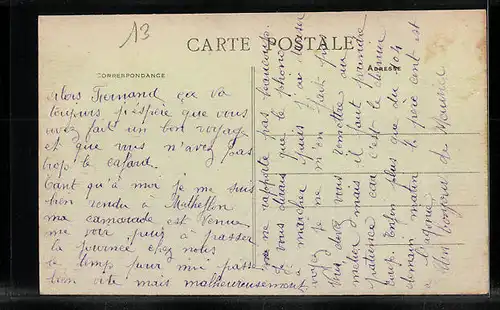 13
CARTE POSTALE
CORRESPONDANCE
ADRESSE
alors Fernand ça va
toujours j'espère que vous
avez fait un bon voyage
et que vous n'avez pas
trop le cafard.
tant qu'à moi je me suis
bien rendu à
ma camarade est venue
me voir puis à passer
la journée chez nous
le temps pour moi passe
bien vite mais malheureusement
ne rapporte pas beaucoup.
je vous dirais que le phono
marcher puis j'ai
voyez je ne m'en fait pas
Vous devez vous remettre au
métier mais il faut prendre
patience car c'est le dernier
coup. Enfin plus que du 104
demain matin le père cent est
à l'agonie.
de Maurice